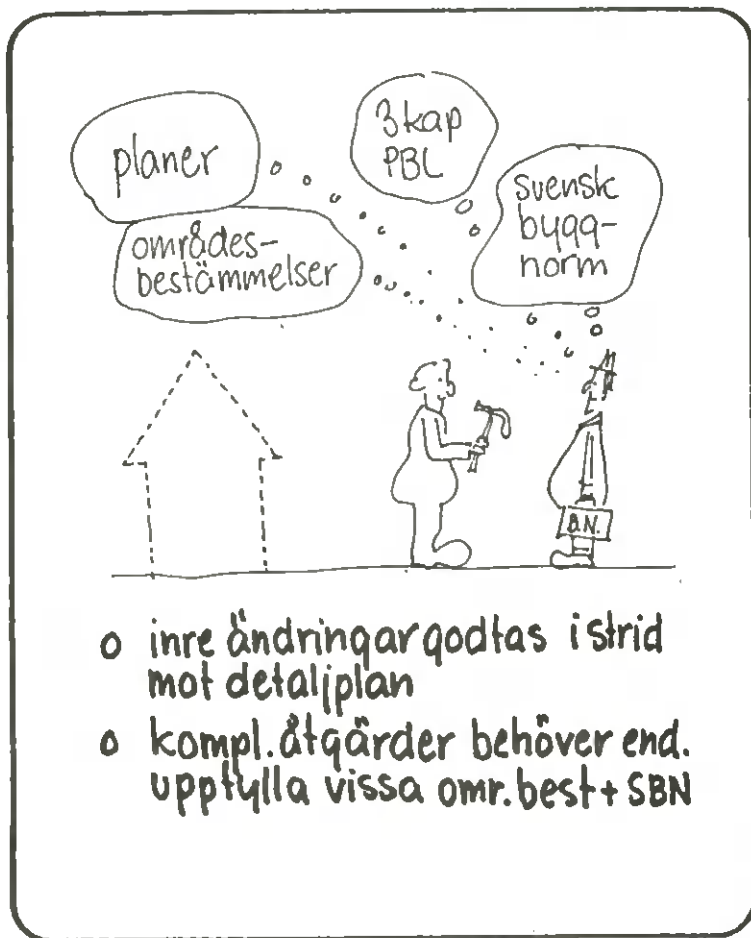 planer
områdes-
bestämmelser
3 kap
PBL
svensk
bygg-
norm
B.N.
o inre ändringar godtas i strid
mot detaljplan
o kompl. åtgärder behöver end.
uppfylla vissa omr. best + SBN